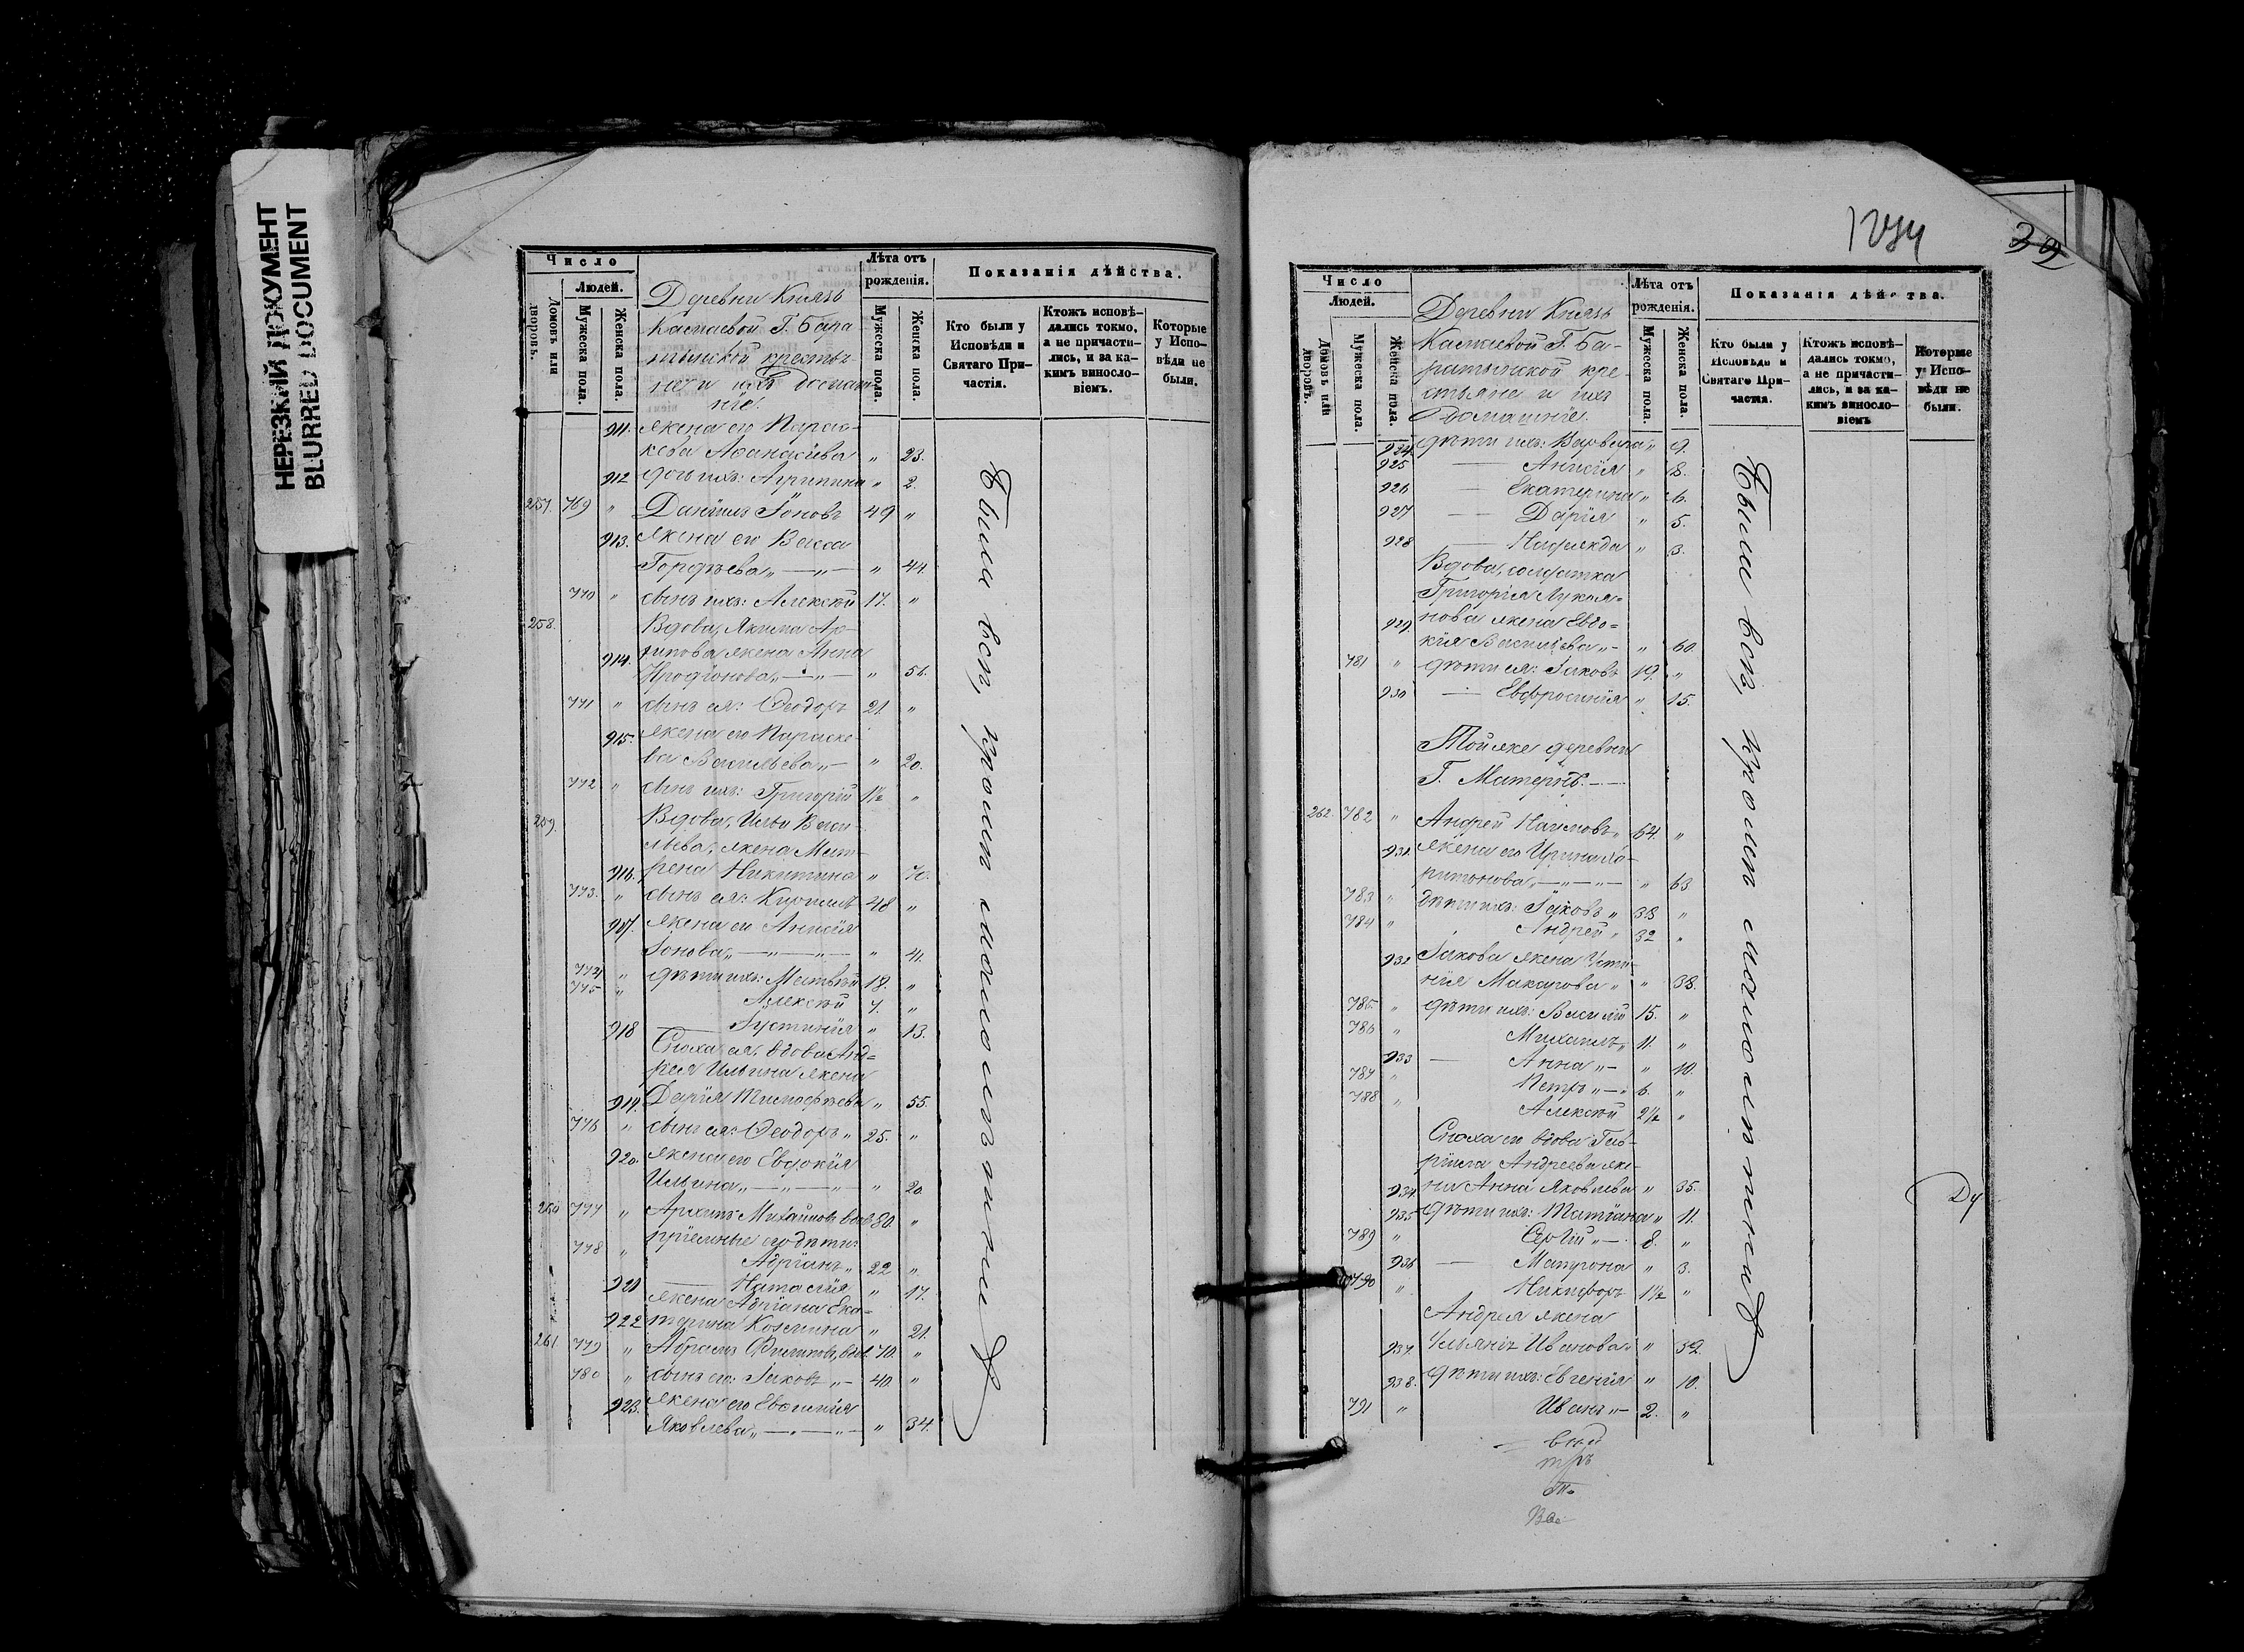 НЕРЕЗКИЙ ДОКУМЕНТ
BLURRED DOCUMENT
Число
Людей.
Домовъ или дворовъ.
Мужеска пола.
Женска пола.
Деревни Князь
Касаевой Г.
крестья
не и ихъ домаш
ніе.
Лѣта отъ рожденія.
Мужеска пола.
Женска пола.
Показанія дѣйства.
Кто были у Исповѣди и Святаго Причастія.
Ктожъ исповѣдались токмо, а не причастились, и за какимъ винословіемъ.
Которые у Исповѣди не были.
911. жена его Параске
кева Аѳанасіева „ 23.
912 дочь ихъ: Агрипина „ 2.
257. 769 „ Даніилъ Іоновъ 49 „
913. жена его Васса
Гордѣева „ — „ — „ 44.
770 „ сынъ ихъ: Алексѣй 17. „
258. Вдова, Якима Ар
хипова жена Анна
914. Иродіонова „ — „ — „ 56.
771 „ сынъ ея: Ѳеодоръ 21. „
915. жена его Параске
ва Васильева „ — „ 20.
772 „ сынъ ихъ: Григорій 1½ „
259. Вдова, Ильи Васи
льева, жена Мат
916. рена Никитина „ 70.
773. „ сынъ ея: Кириллъ 48 „
917. жена его Анисія
Іонова „ — „ — „ — „ 41.
774 „ дѣти ихъ: Матвѣй 18. „
775 „ Алексѣй 7. „
918 — Іустинія „ 13.
Сноха ея, вдова Анд=
рея Ильина жена
919. Дарія Тимоѳѣева „ 55.
776 „ сынъ ея: Ѳеодоръ „ 25. „
920. жена его Евдокія
Ильина „ — „ — „ — „ 20.
260 777 „ Архипъ Михайловъ вдов 80. „
пріемные его дѣти:
778 „ Адріанъ „ 22 „
921 — Наталія „ 17.
жена Адріана Ека=
922 терина Козмина „ 21.
261 779 „ Абрамъ Филиповъ, вдов 70. „
780 „ сынъ его: Іаковъ „ — 40. „
923. жена его Евѳимія
Яковлева „ — „ — „ — „ 34.
Были всѣ, кромѣ малолѣтнихъ
1274
Число
Людей.
Домовъ или дворовъ.
Мужеска пола.
Женска пола.
Деревни Князь
Касаевой Г. Ба-
кре-
стьяне и ихъ
домашніе.
Лѣта отъ рожденія.
Мужеска пола.
Женска пола.
Показанія дѣйства.
Кто были у Исповѣди и Святаго Причастія.
Ктожъ исповѣдались токмо, а не причастились, и за какимъ винословіемъ
Которые у Исповѣди не были.
924. дѣти ихъ: Варвара „ 9.
925 — Анисія „ 8.
926 — Екатерина „ 6.
927 — Дарія „ 5.
928 — Надежда „ 3.
Вдова, солдатка
Григорія Лукья=
929. нова жена Евдо=
кія Васильева „ - „ 60.
781 „ дѣти ея: Іаковъ 19. „
930 — Евфросинія „ 15.
Той же деревни
Г. Матернъ.
262 782 „ Андрей Наумовъ „ 64. „
931. жена его Ирина Ха-
ритонова „ — „ — „ — „ 63
783 „ дѣти ихъ: Іаковъ „ 38 „
784 „ Андрей „ 32 „
932 Іакова жена Усти-
нія Макарова „ „ 38.
785. „ дѣти ихъ: Василій 15. „
786 „ Михаилъ „ 11. „
933 — Анна „ — „ 10.
787 „ Петръ „ — „ 6. „
788 „ Алексѣй 2½ „
Сноха его вдова Гав-
ріила Андреева же-
934 на Анна Яковлева „ 35.
935 дѣти ихъ: Татіана „ 11.
789 „ Сергій „ — 8. „
936 — Матрона „ 3.
790 „ Никифоръ 1½ „
Андрея жена
937. Ульянія Иванова „ „ 32.
938. дѣти ихъ: Евгенія „ 10.
791 „ Иванъ „ — 2. „
Были всѣ, кромѣ малолѣтнихъ